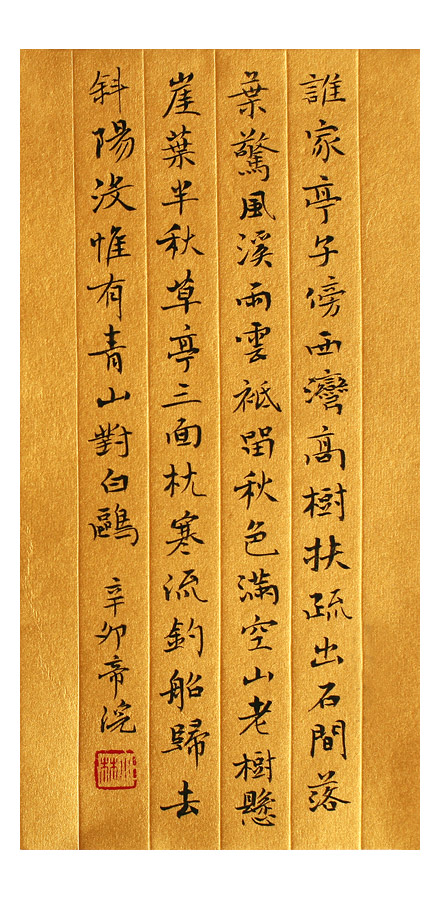 誰家亭子傍西灣高樹扶疏出石間落
葉驚風溪雨雲祗留秋色滿空山老樹懸
崖葉半秋草亭三面枕寒流釣船歸去
斜陽沒惟有青山對白鷗
辛卯帝浣